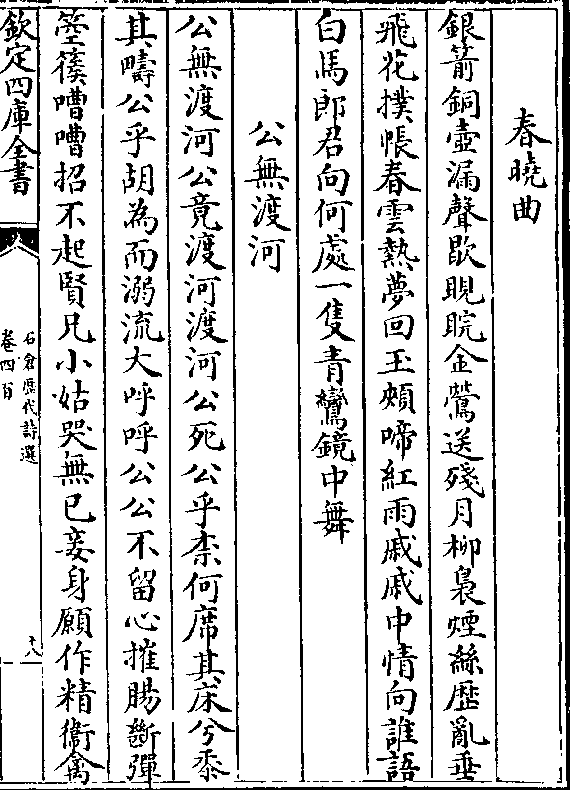 春曉曲
銀箭銅壺漏聲歇睍睆金鶯送殘月柳裊煙絲歷亂垂
飛花撲帳春雲熱夢回玉頰啼紅雨戚戚中情向誰語
白馬郎君向何處一隻青鸞鏡中舞
公無渡河
公無渡河公竟渡河渡河公死公乎柰何席其床兮黍
其疇公乎胡為而溺流大呼呼公公不留心摧腸斷彈
箜篌嘈嘈招不起賢兄小姑哭無已妾身願作精衞禽
欽定四庫全書
石倉歷代詩選
卷四百
十八